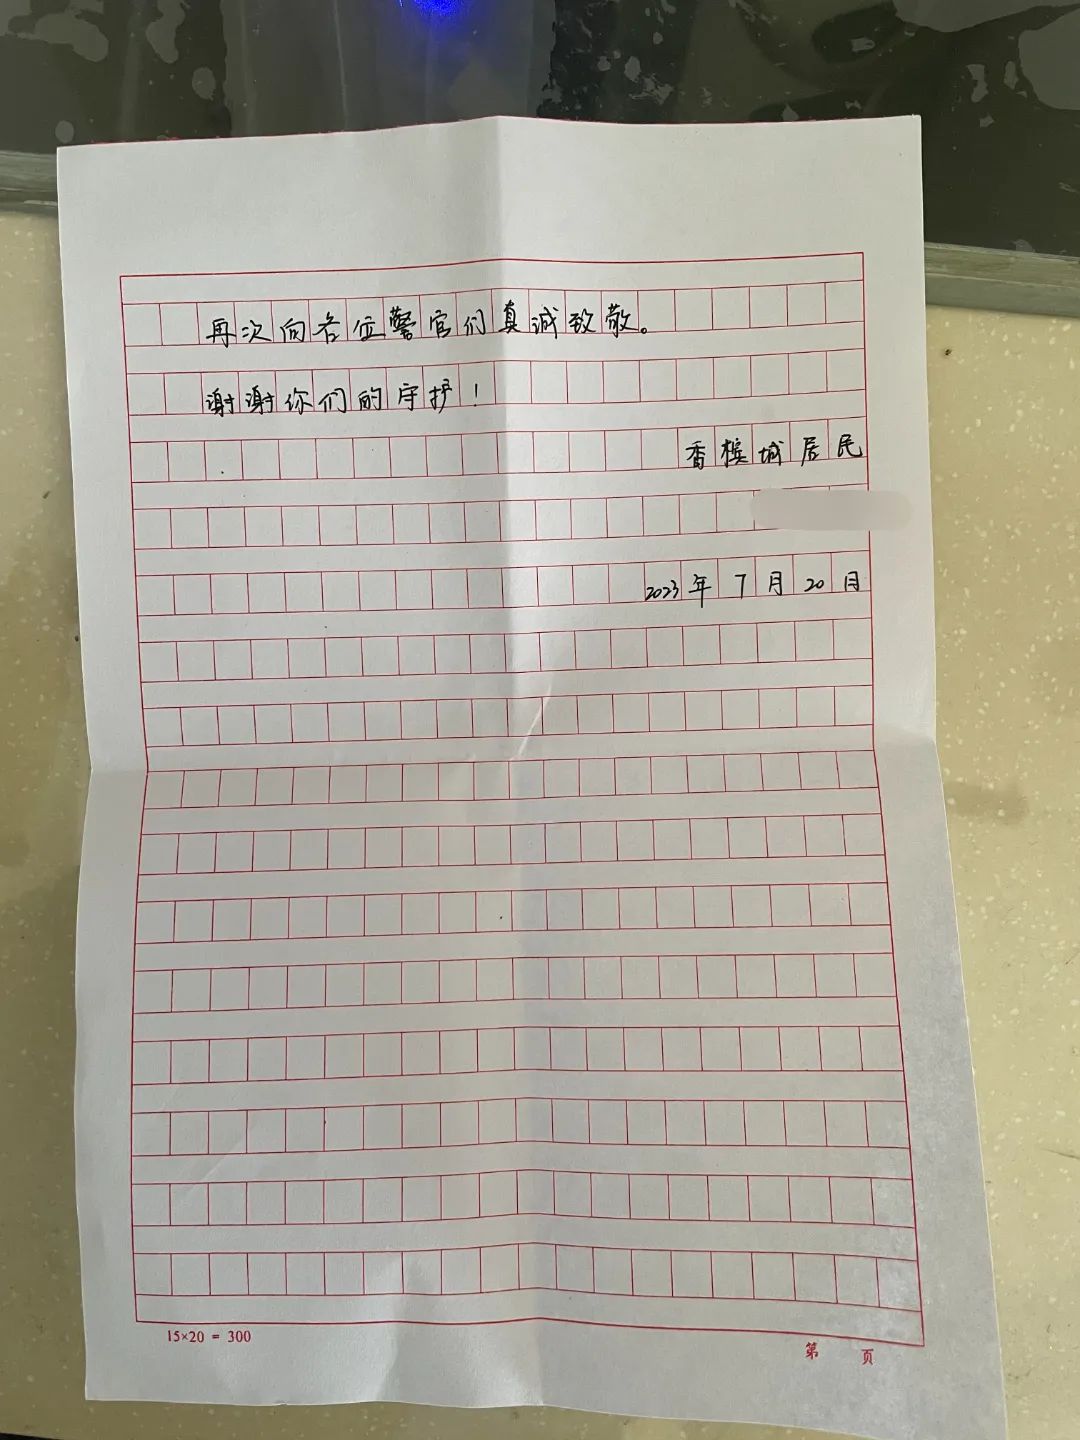 再次向各位警官们真诚致敬。
谢谢你们的守护！
香槟城居民
2023年7月20日
15×20 = 300
第 页